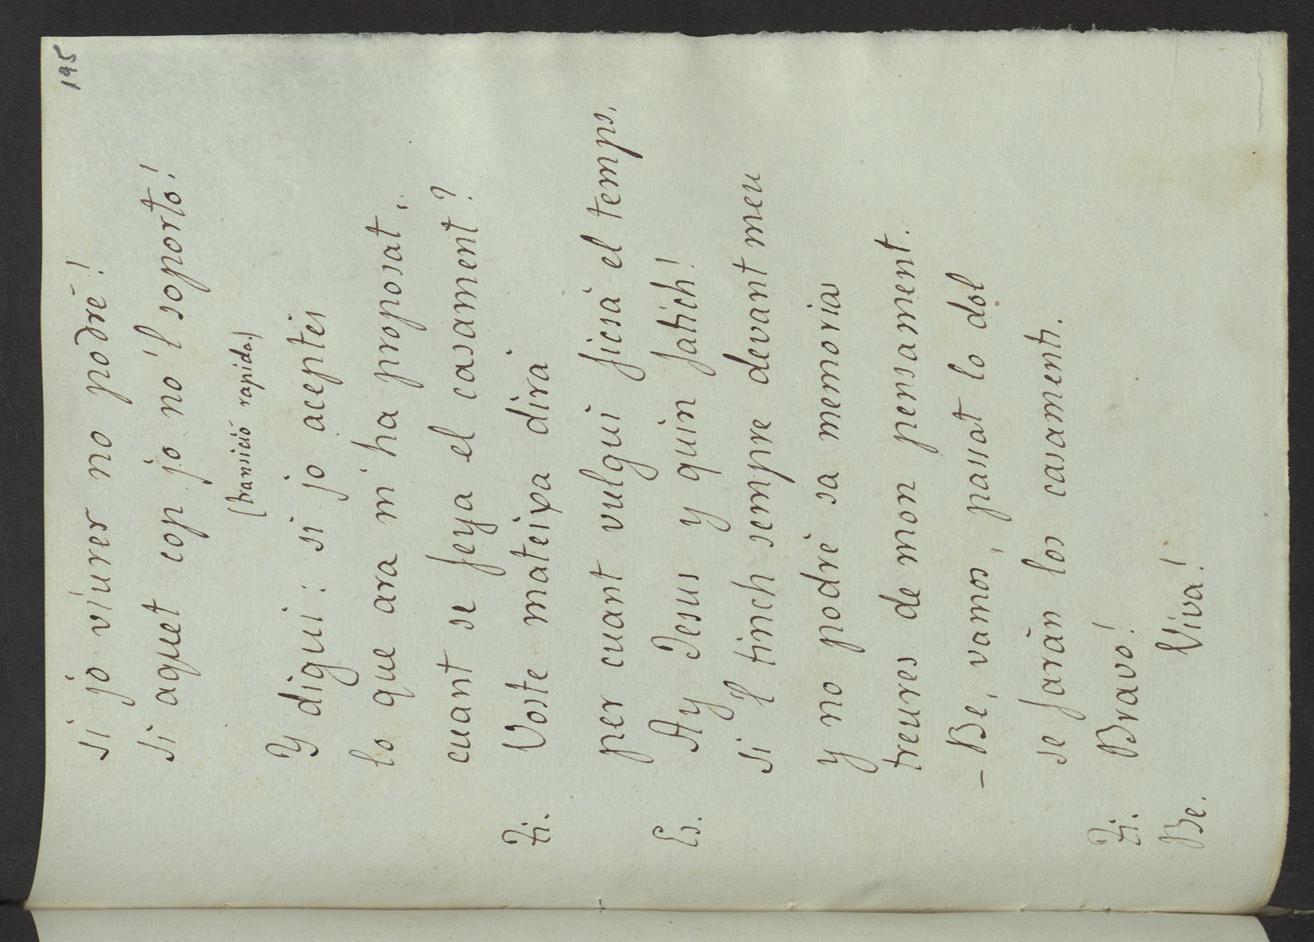 195
si jo viurer no podré!
Si aquet cop jo no 'l soporto!
(transició rapida)
Y digui: si jo aceptés
lo que ara m' ha proposat,
cuant se feya el casament?
Fi. Voste mateixa dirá
per cuant vulgui ficsá el temps.
Es. Ay Jesus y quin fatich!
si 'l tinch sempre devant meu
y no podré sa memoria
treures de mon pensament.
– Be, vamos, passat lo dol
se farán los casaments.
Fi. Bravo!
Be. Viva!